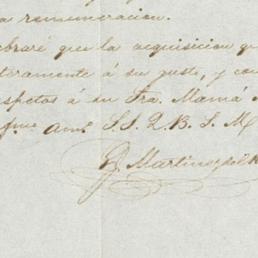 a remuneracion.
braré que la acquisicion qu
teramente á su gusto, y con
spetos á su Sra. Mamá
afmo. am. S.S. Q. B. S. M
R. Martinez